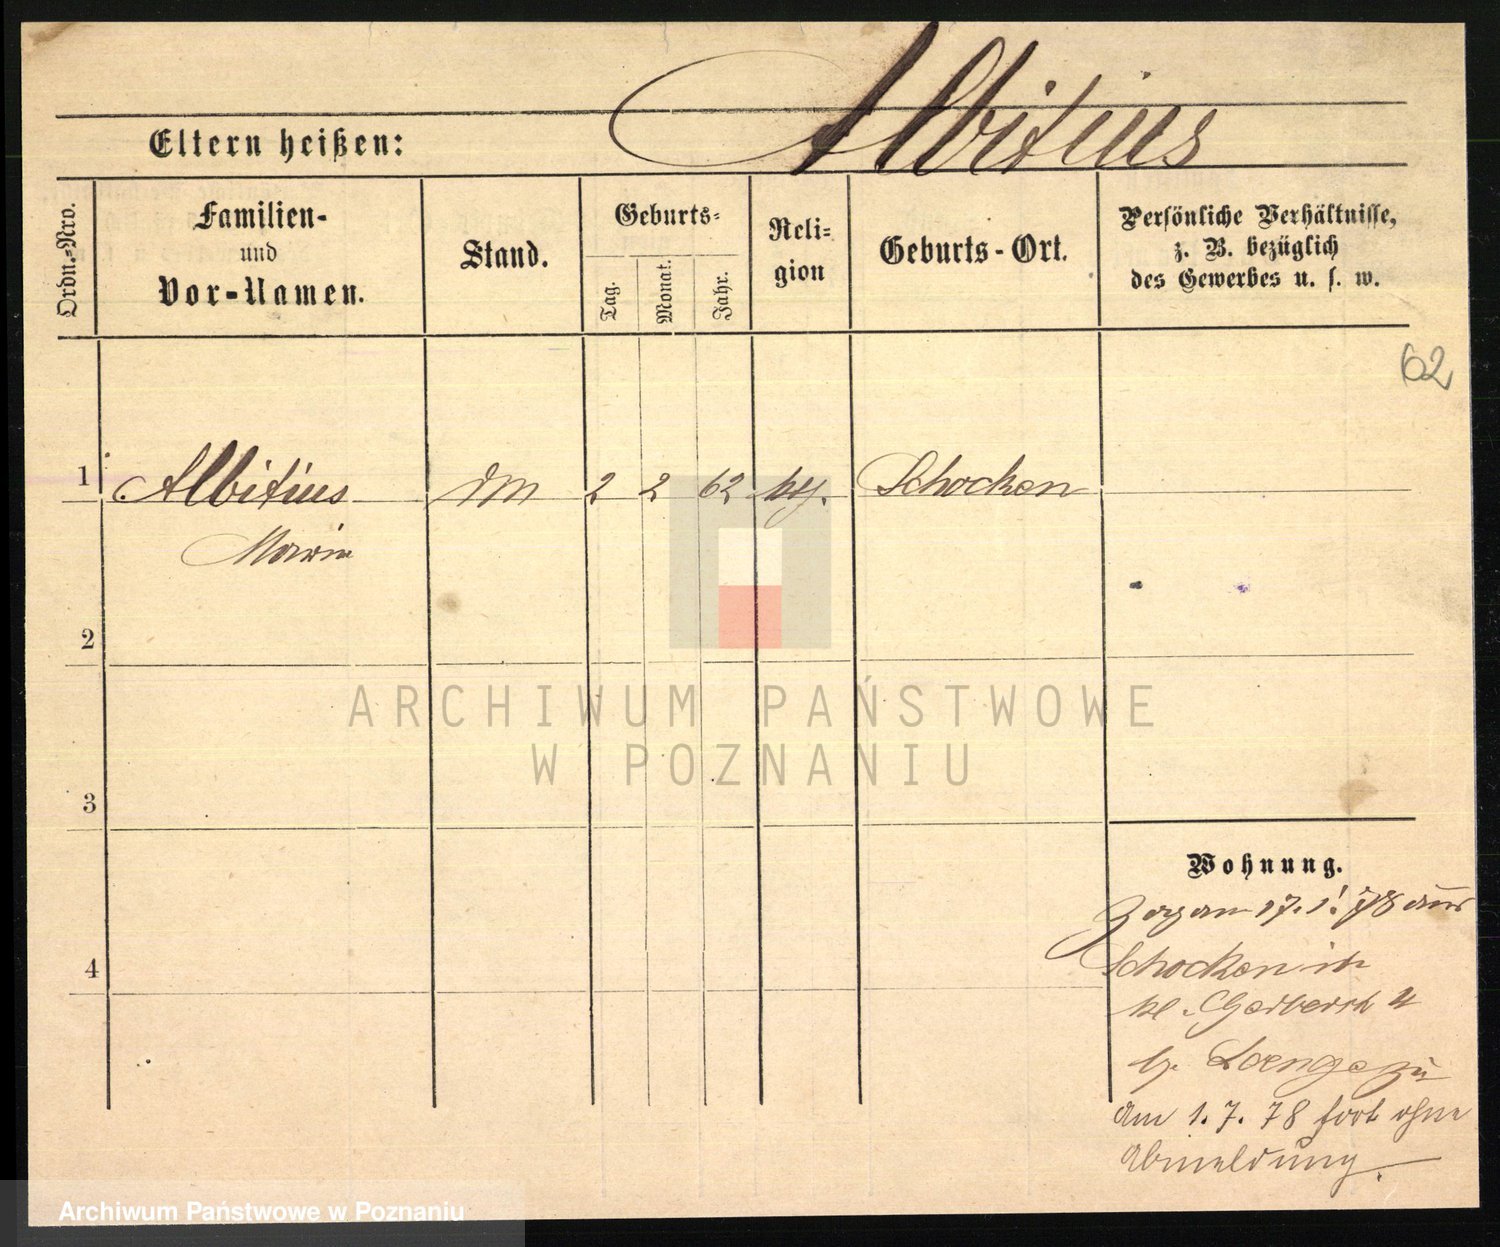 Albitius
Eltern heißen:
Ordn.-Nro.
Familien-
und
Vor-Namen.
Stand.
Geburts-
Tag.
Monat.
Jahr.
Reli-
gion
Geburts-Ort.
Persönliche Verhältnisse,
z. B. bezüglich
des Gewerbes u. s. w.
62
1 Albitius DM 2 2 62 Schocken
Maria
2
ARCHIWUM PAŃSTWOWE
W POZNANIU
3
Wohnung.
Zog am 17. 1. 78 aus
4 Schocken in
kl. Gerberstr 4
am 1. 7. 78 fort ohne
Abmeldung.
Archiwum Państwowe w Poznaniu